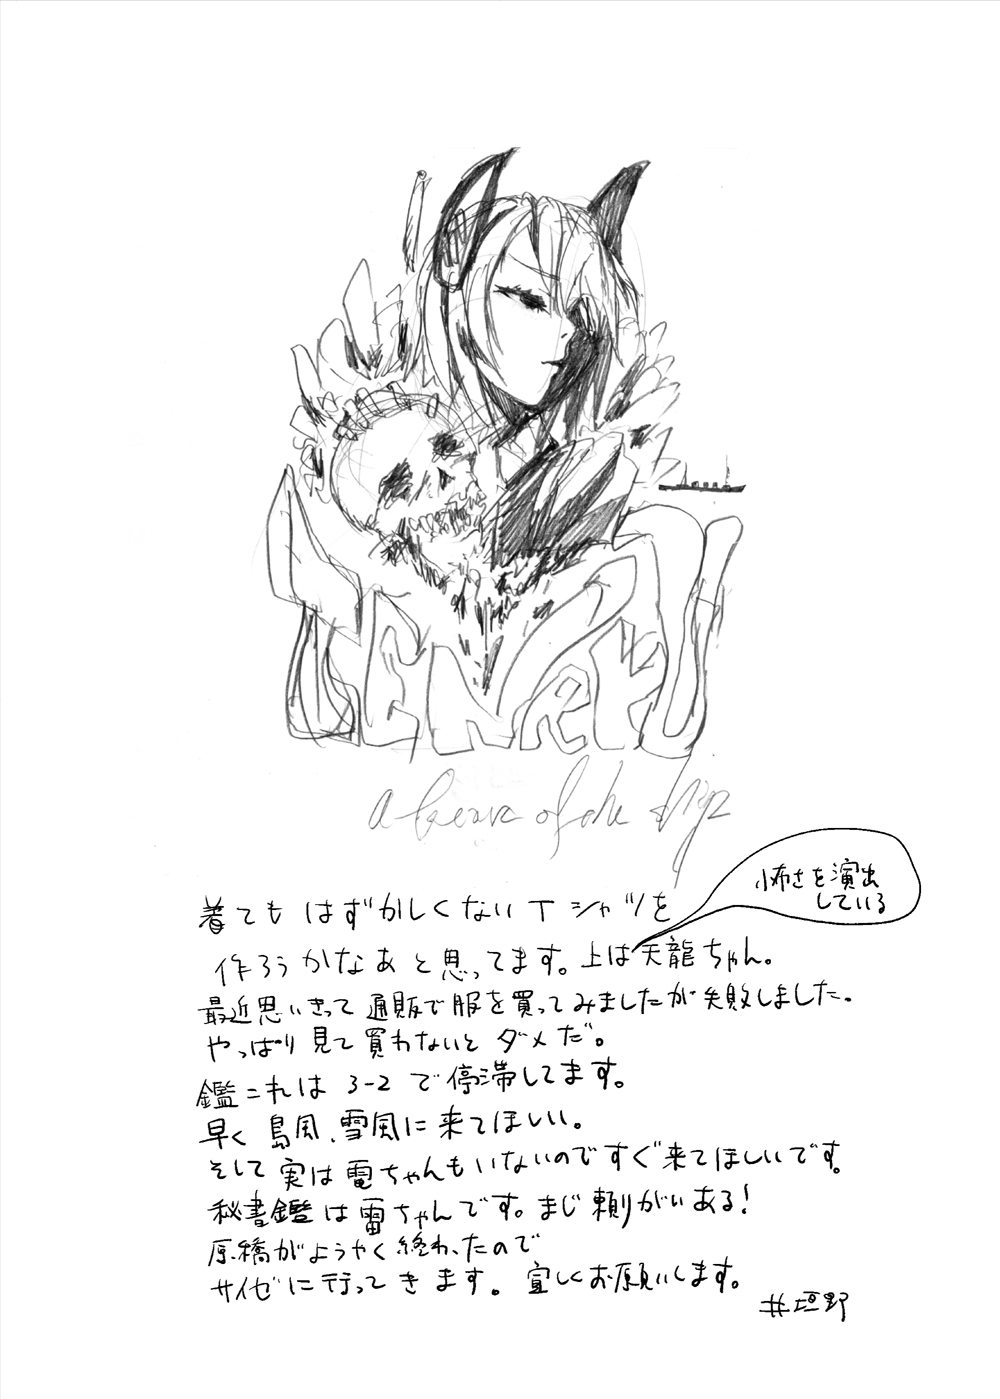 TENRYU
a brave of the ships
怖さを演出
している
着てもはずかしくないTシャツを
作ろうかなあと思ってます。上は天龍ちゃん。
最近思いきって通販で服を買ってみましたが失敗しました。
やっぱり見て買わないとダメだ。
鑑これは3-2で停滞してます。
早く島風、雪風に来てほしい。
そして実は電ちゃんもいないのですぐ来てほしいです。
秘書鑑は雷ちゃんです。まじ頼りがいある!
原橋がようやく終わったので
サイゼに行ってきます。宜しくお願いします。
井垣野